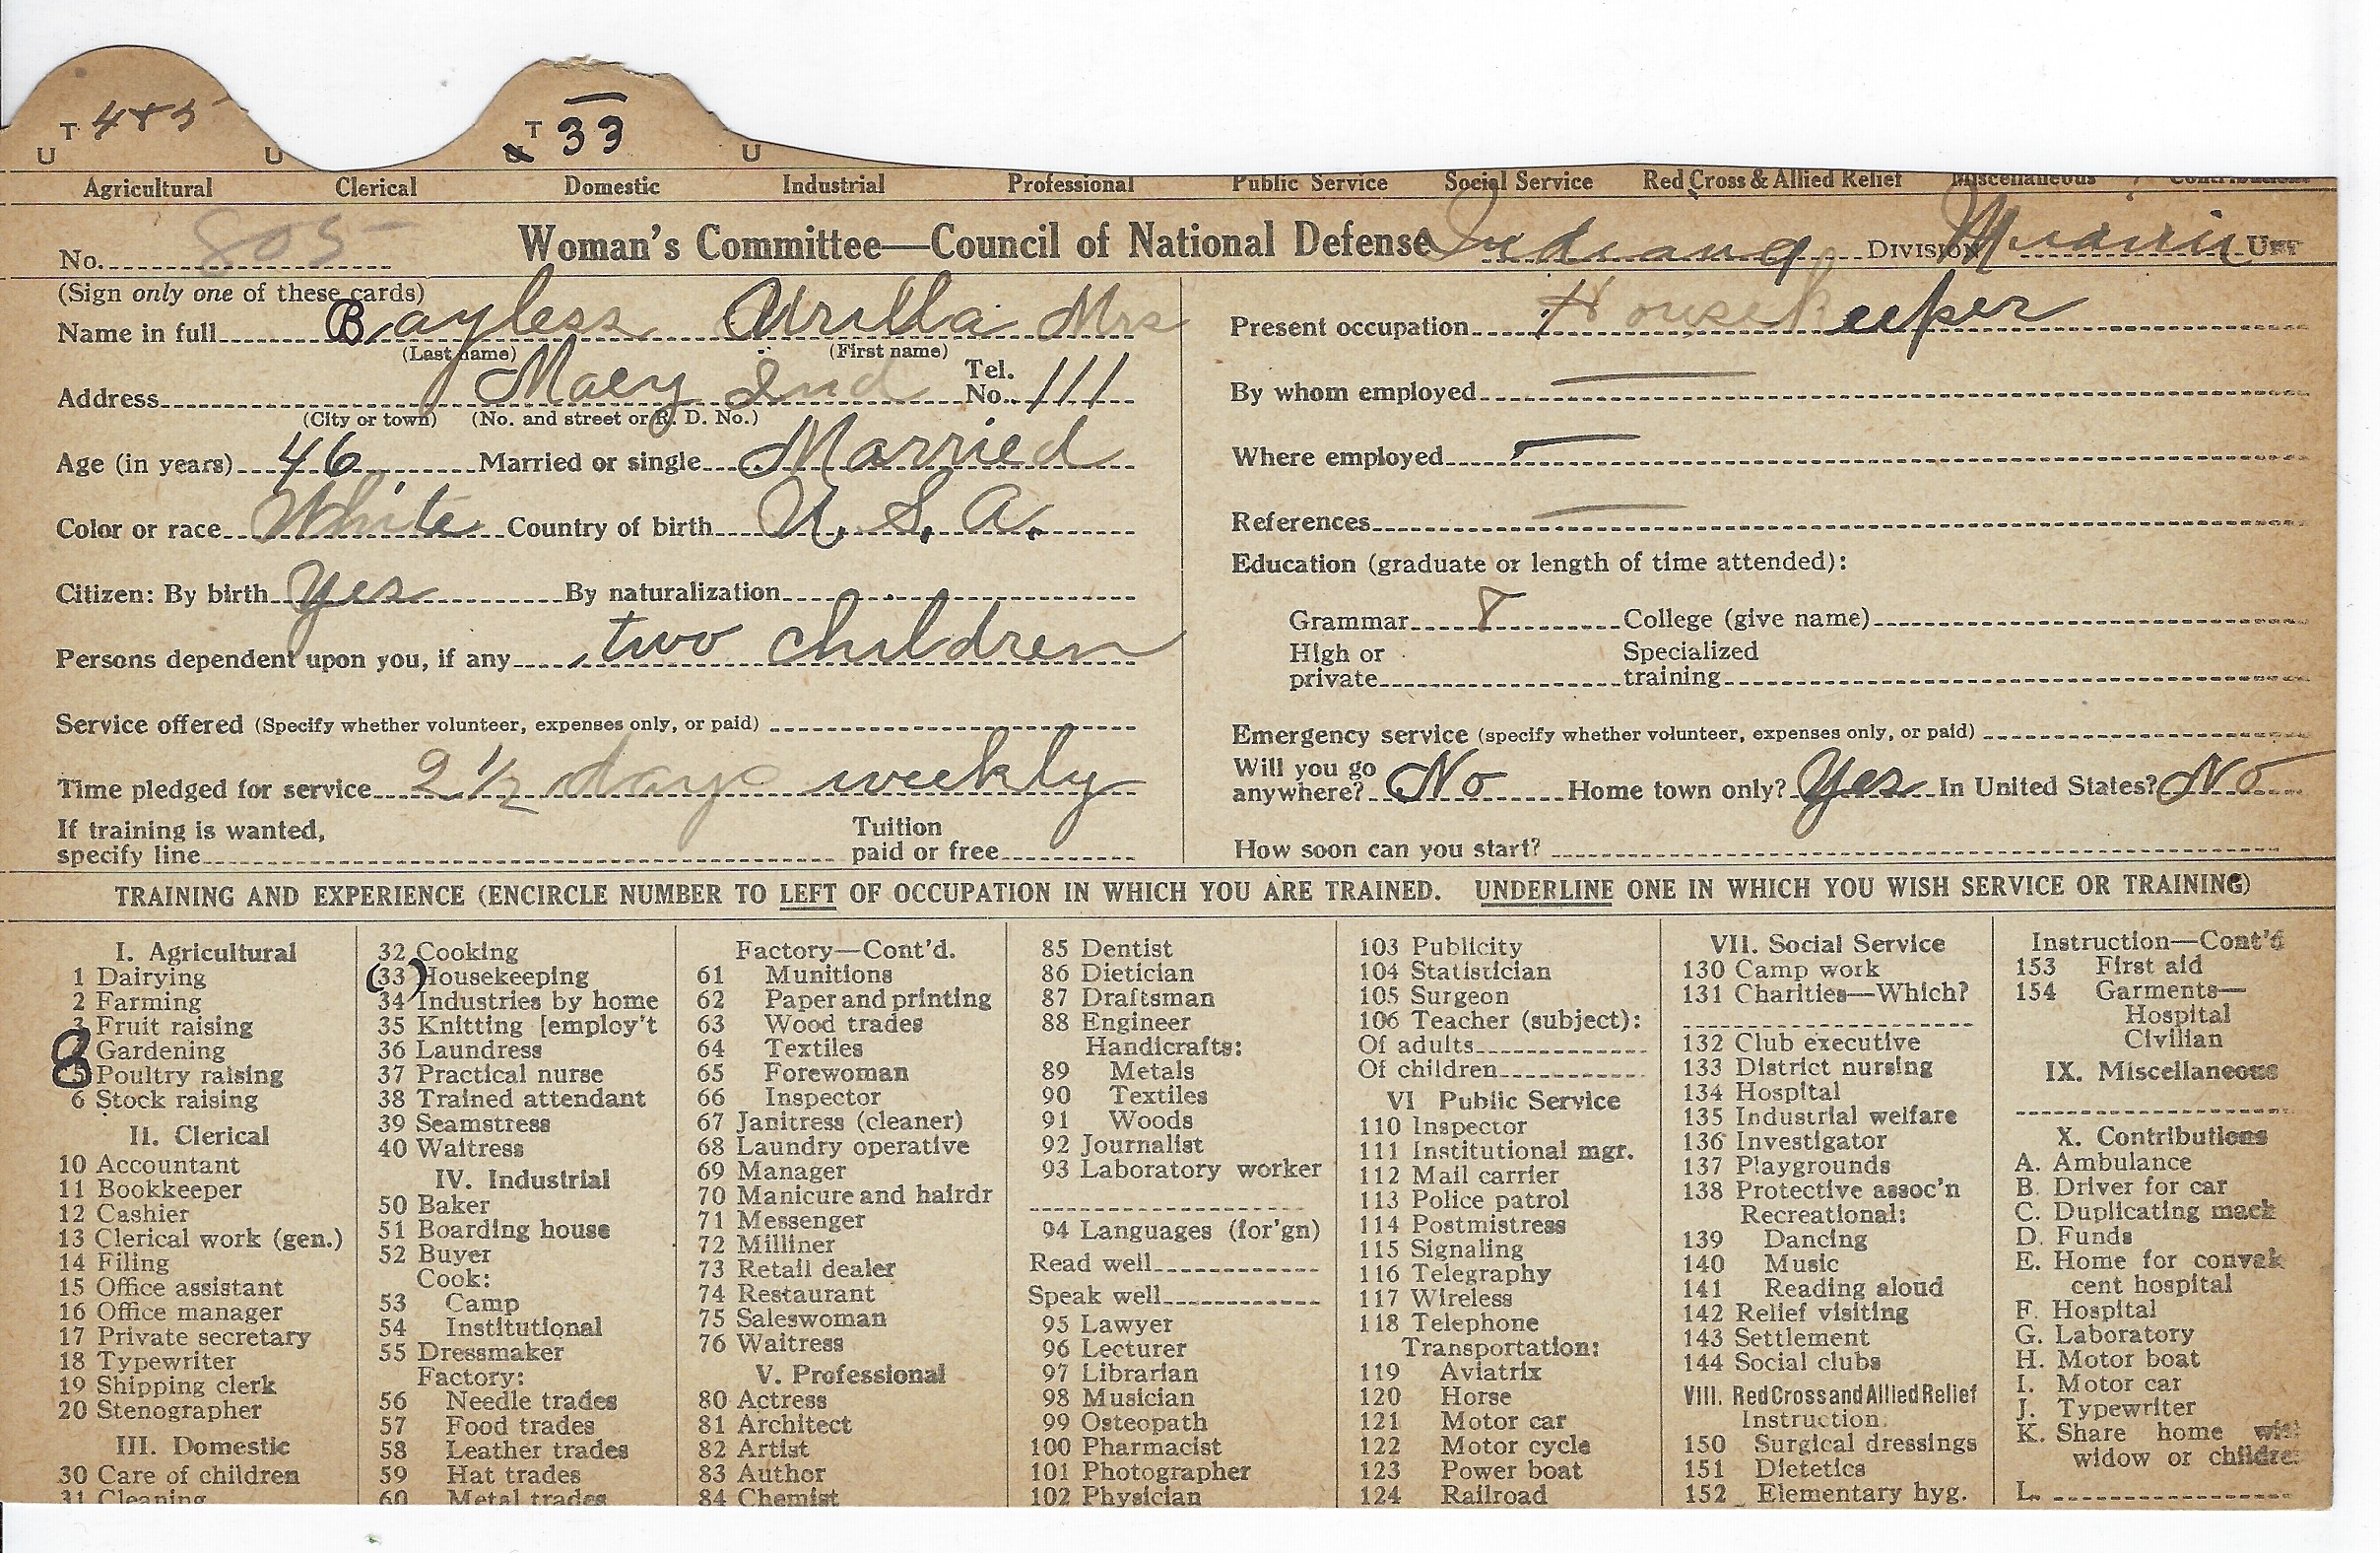 T 4+5 T 33
U U U U
Agricultural Clerical Domestic Industrial Professional Public Service Social Service Red Cross & Allied Relief Miscellaneous
No. 805 Woman's Committee—Council of National Defense Indiana DIVISION UNIT
(Sign only one of these cards)
Name in full Bayless Urilla Mrs
(Last name) (First name)
Address Macy Ind Tel. No. 111
(City or town) (No. and street or R. D. No.)
Age (in years) 46 Married or single Married
Color or race White Country of birth U. S. A.
Citizen: By birth Yes By naturalization
Persons dependent upon you, if any two children
Service offered (Specify whether volunteer, expenses only, or paid)
Time pledged for service 2 1/2 days weekly
If training is wanted, specify line Tuition paid or free
Present occupation Housekeeper
By whom employed —
Where employed —
References —
Education (graduate or length of time attended):
Grammar 8 College (give name)
High or private Specialized training
Emergency service (specify whether volunteer, expenses only, or paid)
Will you go anywhere? No Home town only? Yes In United States? No
How soon can you start?
TRAINING AND EXPERIENCE (ENCIRCLE NUMBER TO LEFT OF OCCUPATION IN WHICH YOU ARE TRAINED. UNDERLINE ONE IN WHICH YOU WISH SERVICE OR TRAINING)
I. Agricultural
1 Dairying
2 Farming
3 Fruit raising
Gardening
5 Poultry raising
6 Stock raising
II. Clerical
10 Accountant
11 Bookkeeper
12 Cashier
13 Clerical work (gen.)
14 Filing
15 Office assistant
16 Office manager
17 Private secretary
18 Typewriter
19 Shipping clerk
20 Stenographer
III. Domestic
30 Care of children
31 Cleaning
32 Cooking
(33) Housekeeping
34 Industries by home
35 Knitting [employ't
36 Laundress
37 Practical nurse
38 Trained attendant
39 Seamstress
40 Waitress
IV. Industrial
50 Baker
51 Boarding house
52 Buyer
Cook:
53 Camp
54 Institutional
55 Dressmaker
Factory:
56 Needle trades
57 Food trades
58 Leather trades
59 Hat trades
60 Metal trades
Factory—Cont'd.
61 Munitions
62 Paper and printing
63 Wood trades
64 Textiles
65 Forewoman
66 Inspector
67 Janitress (cleaner)
68 Laundry operative
69 Manager
70 Manicure and hairdr
71 Messenger
72 Milliner
73 Retail dealer
74 Restaurant
75 Saleswoman
76 Waitress
V. Professional
80 Actress
81 Architect
82 Artist
83 Author
84 Chemist
85 Dentist
86 Dietician
87 Draftsman
88 Engineer
Handicrafts:
89 Metals
90 Textiles
91 Woods
92 Journalist
93 Laboratory worker
94 Languages (for'gn)
Read well
Speak well
95 Lawyer
96 Lecturer
97 Librarian
98 Musician
99 Osteopath
100 Pharmacist
101 Photographer
102 Physician
103 Publicity
104 Statistician
105 Surgeon
106 Teacher (subject):
Of adults
Of children
VI Public Service
110 Inspector
111 Institutional mgr.
112 Mail carrier
113 Police patrol
114 Postmistress
115 Signaling
116 Telegraphy
117 Wireless
118 Telephone
Transportation:
119 Aviatrix
120 Horse
121 Motor car
122 Motor cycle
123 Power boat
124 Railroad
VII. Social Service
130 Camp work
131 Charities—Which?
132 Club executive
133 District nursing
134 Hospital
135 Industrial welfare
136 Investigator
137 Playgrounds
138 Protective assoc'n
Recreational:
139 Dancing
140 Music
141 Reading aloud
142 Relief visiting
143 Settlement
144 Social clubs
VIII. Red Cross and Allied Relief
Instruction.
150 Surgical dressings
151 Dietetics
152 Elementary hyg.
Instruction—Cont'd
153 First aid
154 Garments—
Hospital
Civilian
IX. Miscellaneous
X. Contributions
A. Ambulance
B. Driver for car
C. Duplicating mach
D. Funds
E. Home for convales
cent hospital
F. Hospital
G. Laboratory
H. Motor boat
I. Motor car
J. Typewriter
K. Share home with
widow or children
L.